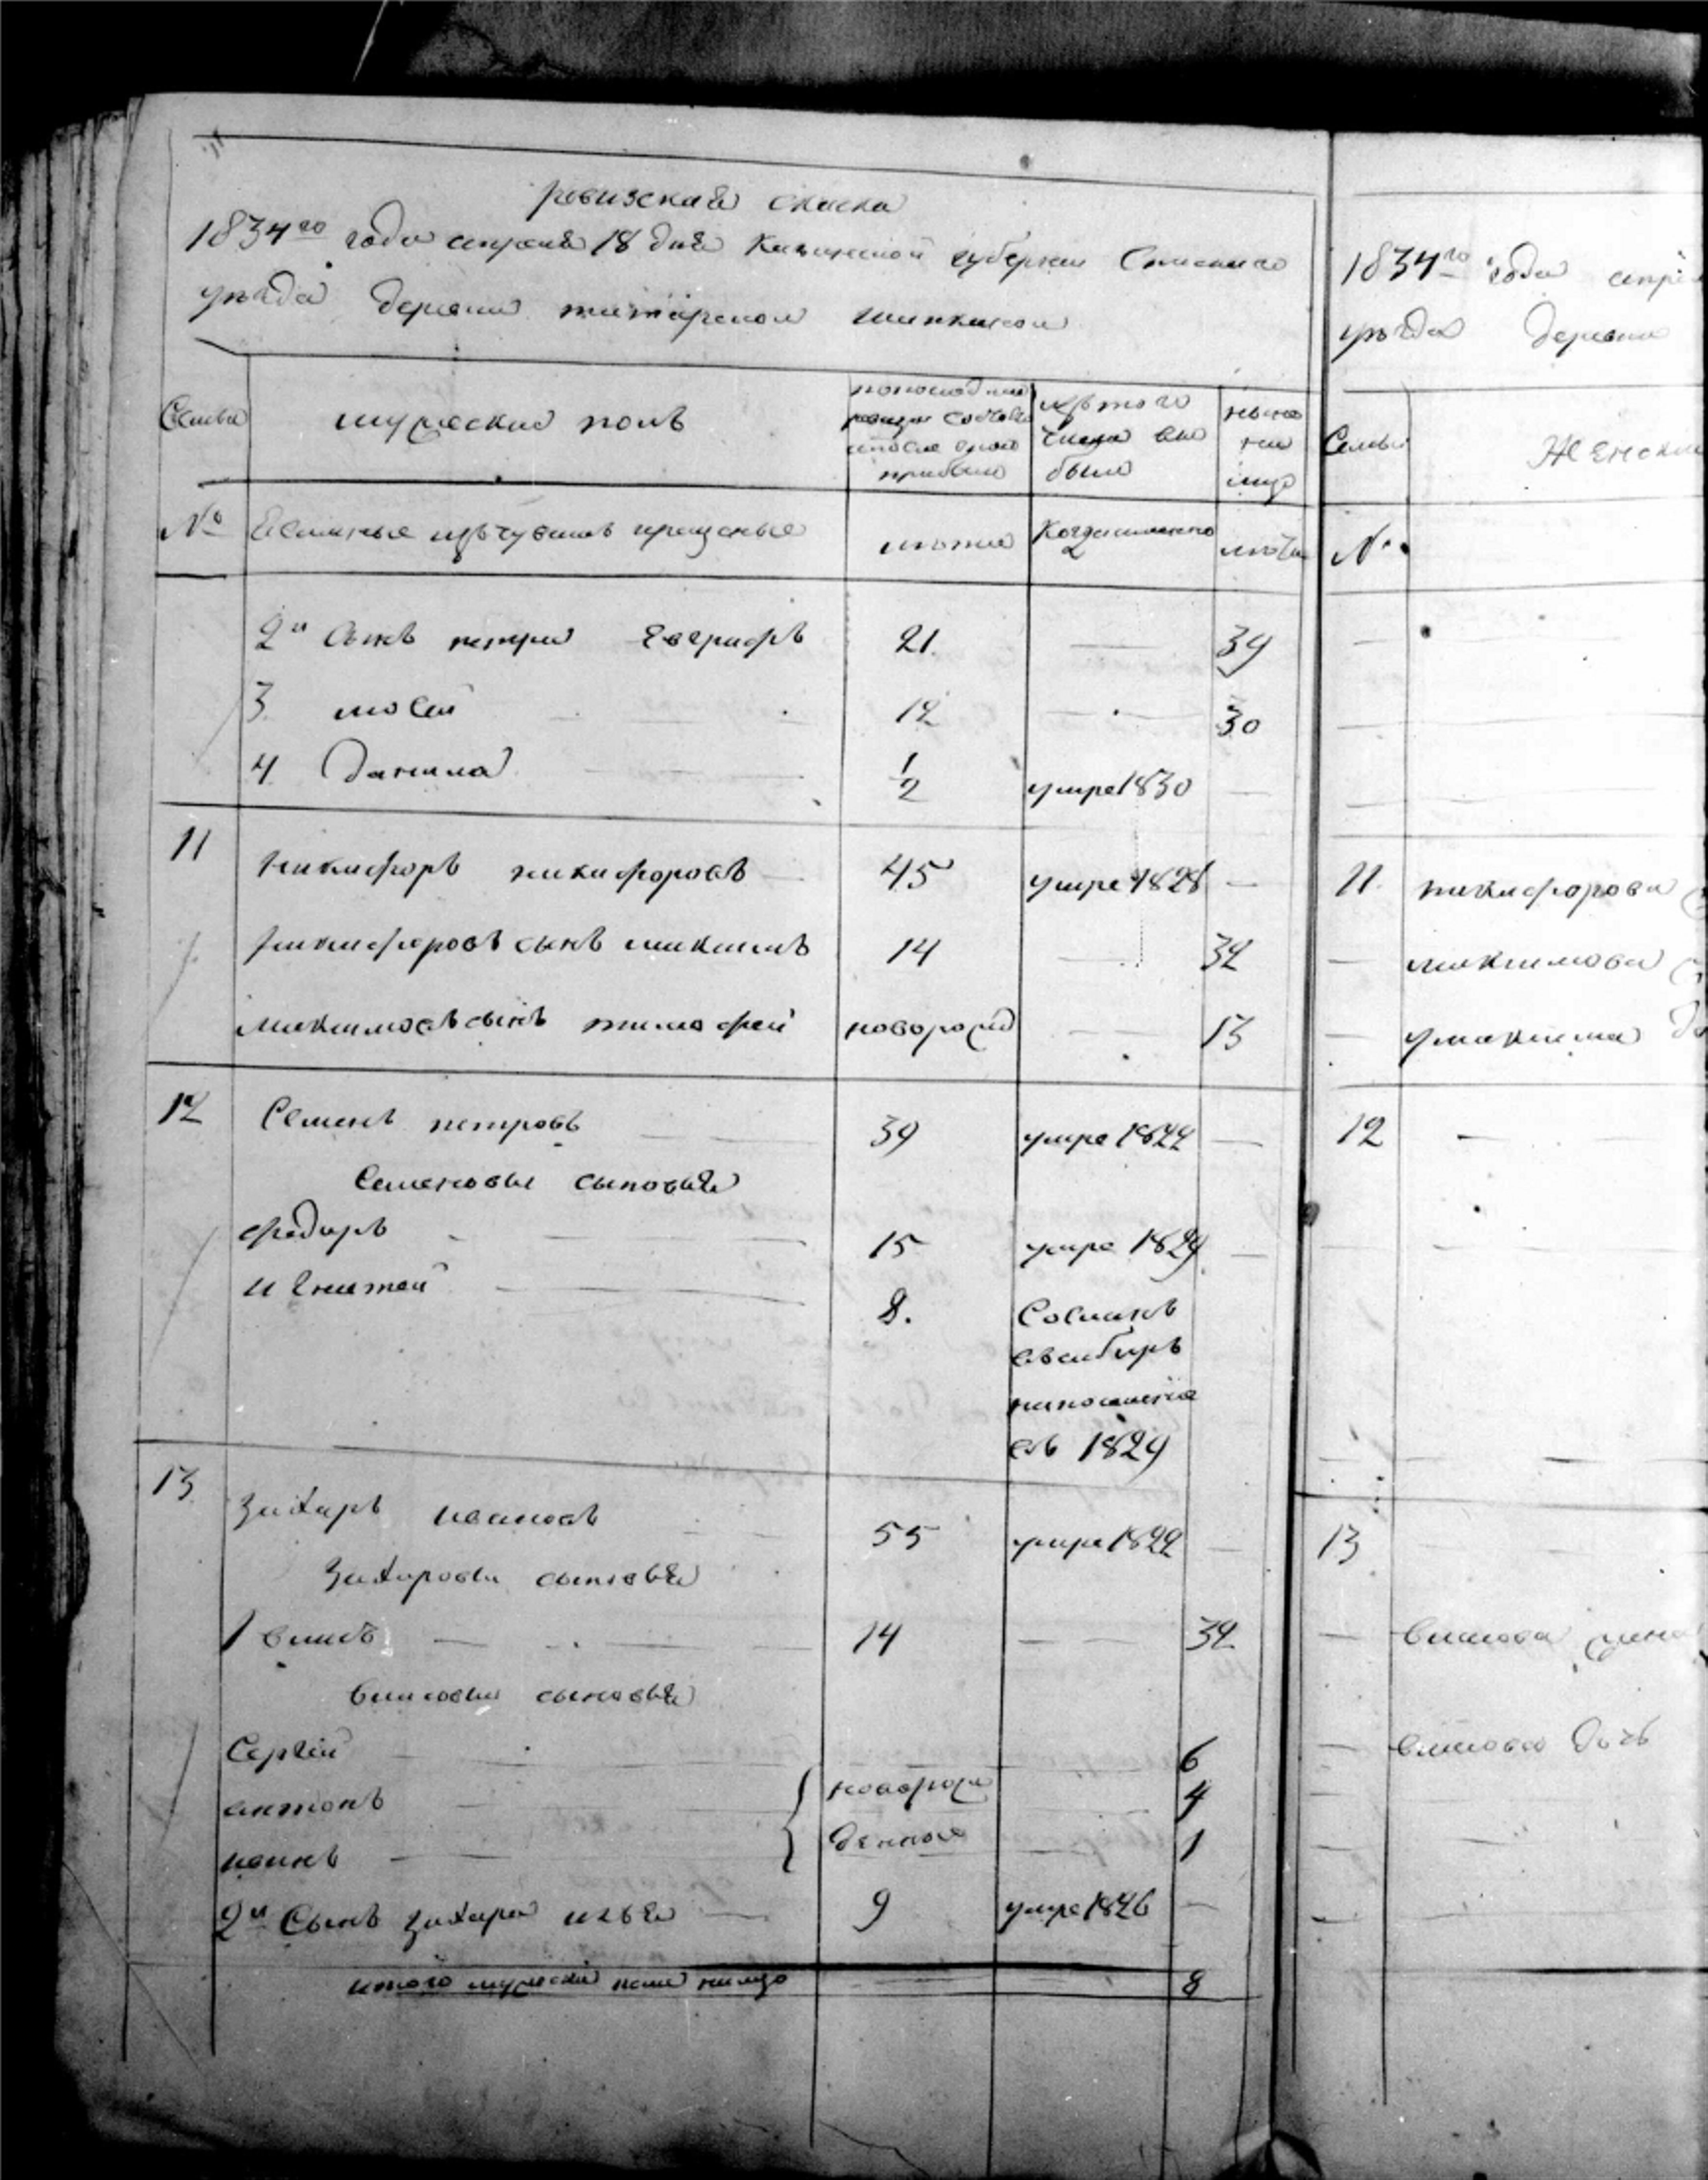 ревизская скаска
1834го года апреля 18 дня Казанской губернии Спаскаго
уѣзда деревни татарской
Семьи
мужеской полъ
по последней ревизи состояло и после оной прибыло
изъ того числа выбыло
ныне на лицо
№
Ясашные изъ чувашъ крещеные
лѣта
Когда именно
лѣта
2й Сынъ петра Евграфъ 21. — 39
3 мосей 12 — 30
4 данила 1/2 умре 1830 —
11 никифоръ никифоровъ 45 умре 1828 —
никифоровъ сынъ максимъ 14 — 32
максимовъ сынъ тимофей новорож — 13
12 Семенъ петровъ — 39 умре 1822 —
Семеновы сыновья
федоръ — 15 умре 1829 —
игнатей — 8. Сосланъ
въ сибирь
на поселение
въ 1829
13 Захаръ ивановъ 55 умре 1822 —
Захаровы сыновья
1 — 14 — 32
сыновья
Сергей — 6
антонъ — новорож 4
иванъ — денные 1
2й Сынъ захара илья — 9 умре 1826 —
итого мужеска пола налицо 8
1834го года
уѣзда деревни
Семьи
Женски
№
11. никифорова
— максимова
— у максима
12 —
13 —
—
— дочь